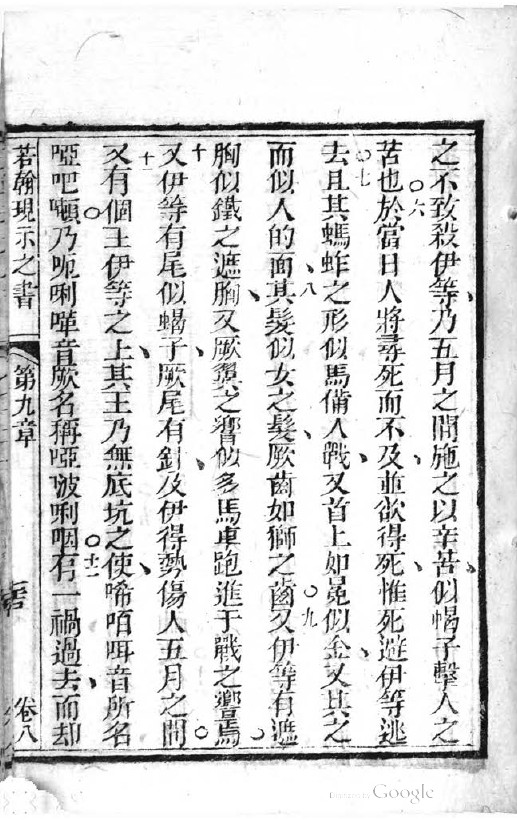 之不致殺伊等乃五月之間施之以辛苦似蝎子擊人之
苦也○六於當日人將尋死而不及並欲得死惟死避伊等逃
去○七且其螞蚱之形似馬備人戰又首上如冕似金又其之
而似人的面八其髮似女之髮厥齒如獅之齒○九又伊等有遮
胸似鐵之遮胸又厥翼之響似多馬車跑進于戰之響焉○
十又伊等有尾似蝎子厥尾有針及伊得勢傷人五月之間
十一又有個王伊等之上其王乃無底坑之使唏咟咡音所名
啞吧嚫○乃呃唎嗶音厥名稱啞啵唎咽○十二有一禍過去而却
若翰現示之書 第九章 卷八
Digitized by Google